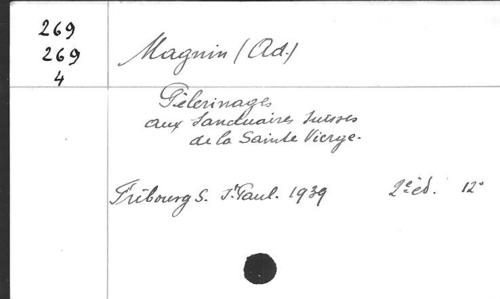 269
269
4
Magnin (Ad.)
Pèlerinages
aux Sanctuaires suisses
de la Sainte Vierge.
Fribourg S. St Paul. 1939 2e éd. 12°